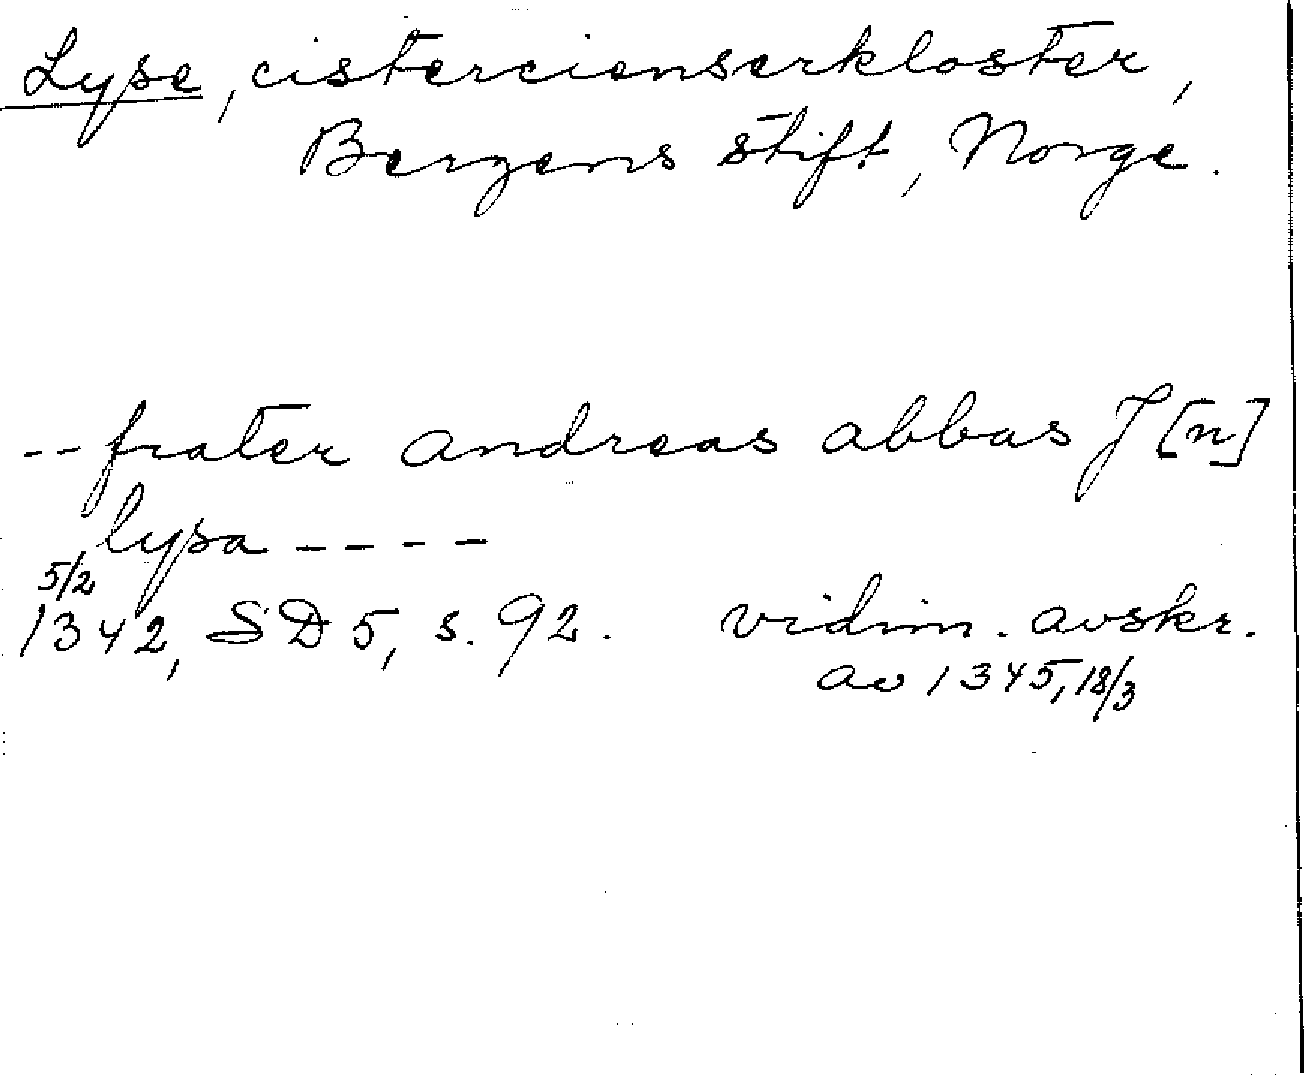 Lyse, cistercienserkloster,
Bergens stift, Norge.
-- frater andreas abbas J [n]
lysa ----
5/2
1342, SD 5, s. 92. vidim. avskr.
av 1345, 18/3